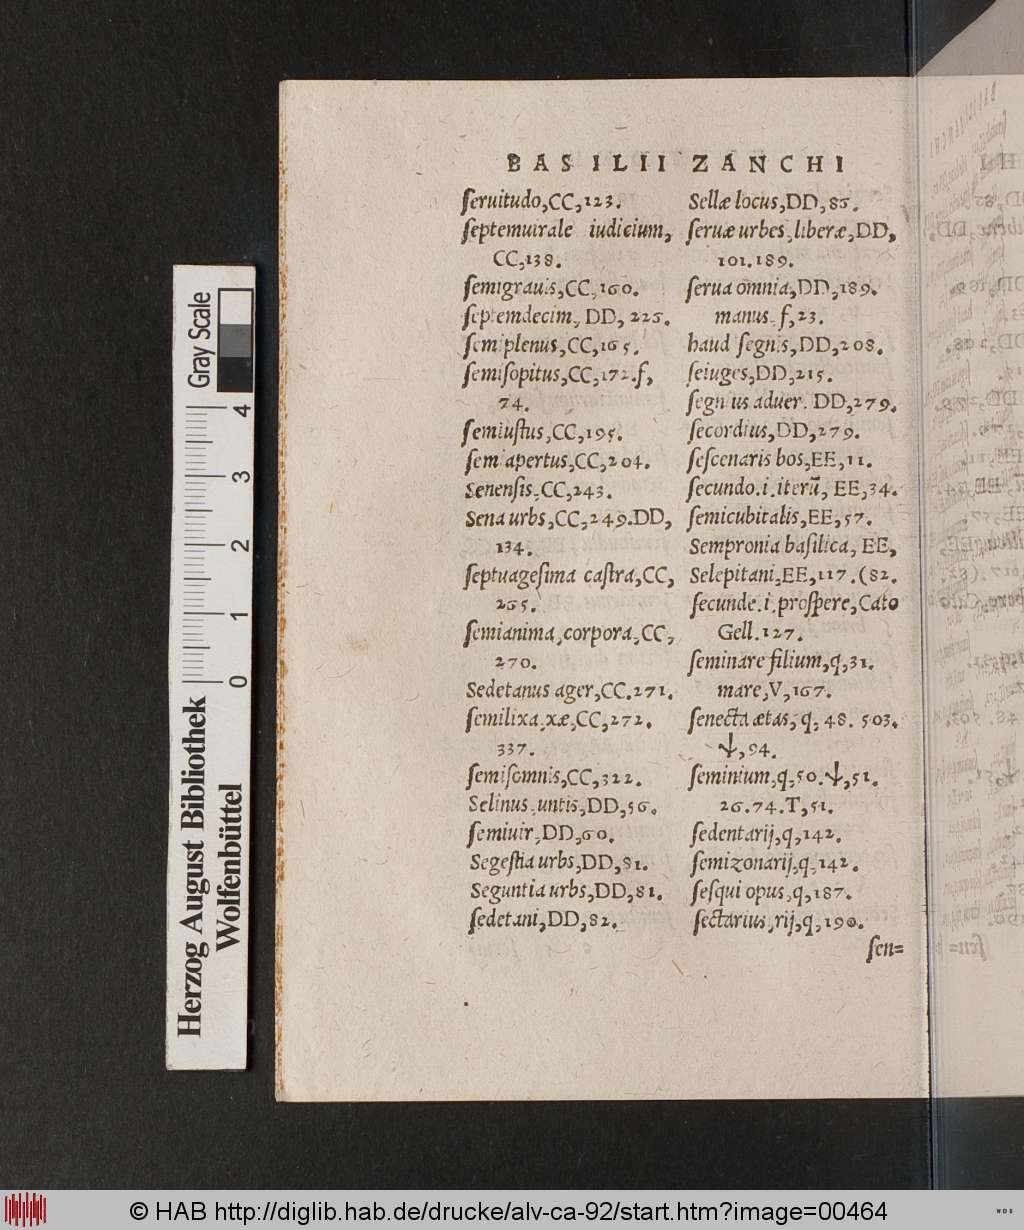 BASILII ZANCHI
ſeruitudo,CC,123.
ſeptemuirale iudicium,
CC,138.
ſemigrauis,CC,160.
ſeptemdecim, DD, 225.
ſemiplenus,CC,165.
ſemiſopitus,CC,172.f,
74.
ſemiuſtus,CC,195.
ſemiapertus,CC,204.
Senenſis,CC,243.
Sena urbs,CC,249.DD,
134.
ſeptuageſima caſtra,CC,
265.
ſemianima,corpora,CC,
270.
Sedetanus ager,CC.271.
ſemilixa,xæ,CC,272.
337.
ſemiſomnis,CC,322.
Selinus,untis,DD,56.
ſemiuir,DD,60.
Segeſtia urbs,DD,81.
Seguntia urbs,DD,81.
ſedetani,DD,82.
Sellæ locus,DD,85.
ſeruæ urbes,liberæ,DD,
101.189.
ſerua omnia,DD,189.
manus,f,23.
haud ſegnis,DD,208.
ſeiuges,DD,215.
ſegnius aduer. DD,279.
ſecordius,DD,279.
ſeſcenaris bos,EE,11.
ſecundo.i.iterū, EE,34.
ſemicubitalis,EE,57.
Sempronia baſilica, EE,
Selepitani,EE,117.(82.
ſecunde.i.proſpere,Cato
Gell.127.
ſeminare filium,q,31.
mare,V,167.
ſenecta ætas, q, 48. 503.
,94.
ſeminium,q,50. ,51.
26.74.T,51.
ſedentarij,q,142.
ſemizonarij,q,142.
ſeſqui opus,q,187.
ſectarius,rij,q,190.
ſen=
Herzog August Bibliothek
Wolfenbüttel
Gray Scale
0 1 2 3 4
© HAB http://diglib.hab.de/drucke/alv-ca-92/start.htm?image=00464
WDB